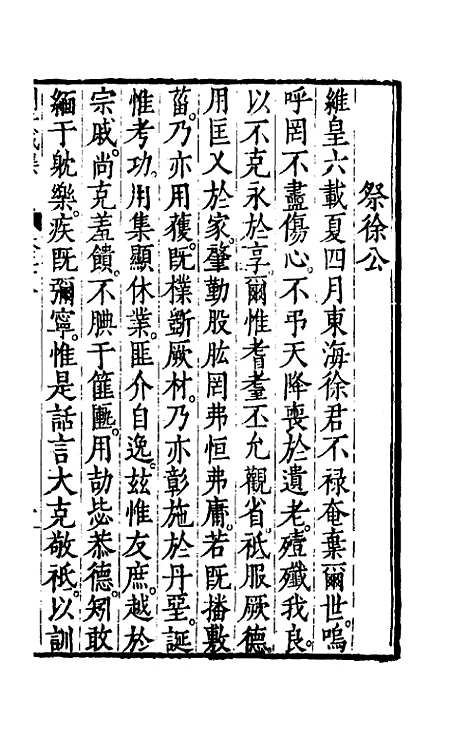 祭徐公
維皇六載夏四月東海徐君不祿奄棄爾世嗚
呼罔不盡傷心不弔天降喪於遺老殪殲我良
以不克永於享爾惟耆耋丕允觀省祗服厥德
用匡乂於家肇勤股肱罔弗恒弗庸若既播敷
菑乃亦用穫既樸斲厥材乃亦彰施於丹堊誕
惟考功用集顯休業匪介自逸玆惟友庶越於
宗戚尚克羞饋不腆于篚匭用劼毖恭德矧敢
緬于躭樂疾既彌寧惟是話言大克敬祗以訓